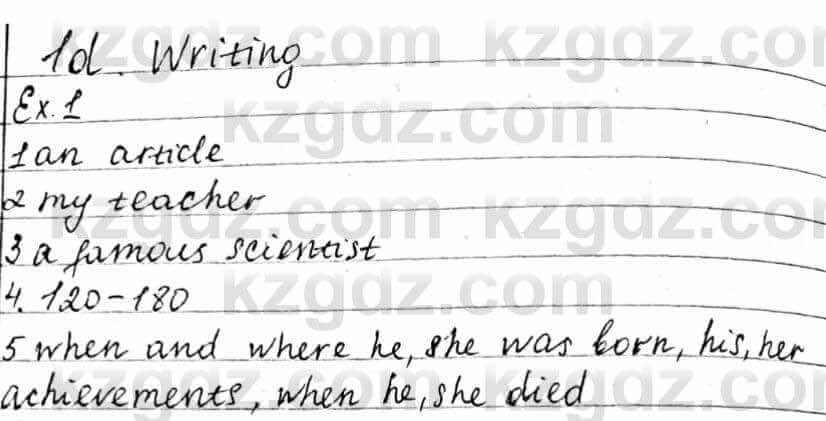 1d. Writing
Ex. 1
1 an article
2 my teacher
3 a famous scientist
4. 120-180
5 when and where he, she was born, his, her
achievements, when he, she died
kzgdz.com kzgdz.com
kzgdz.com
kzgdz.com kzgdz.com
kzgdz.com
kzgdz.com kzgdz.com